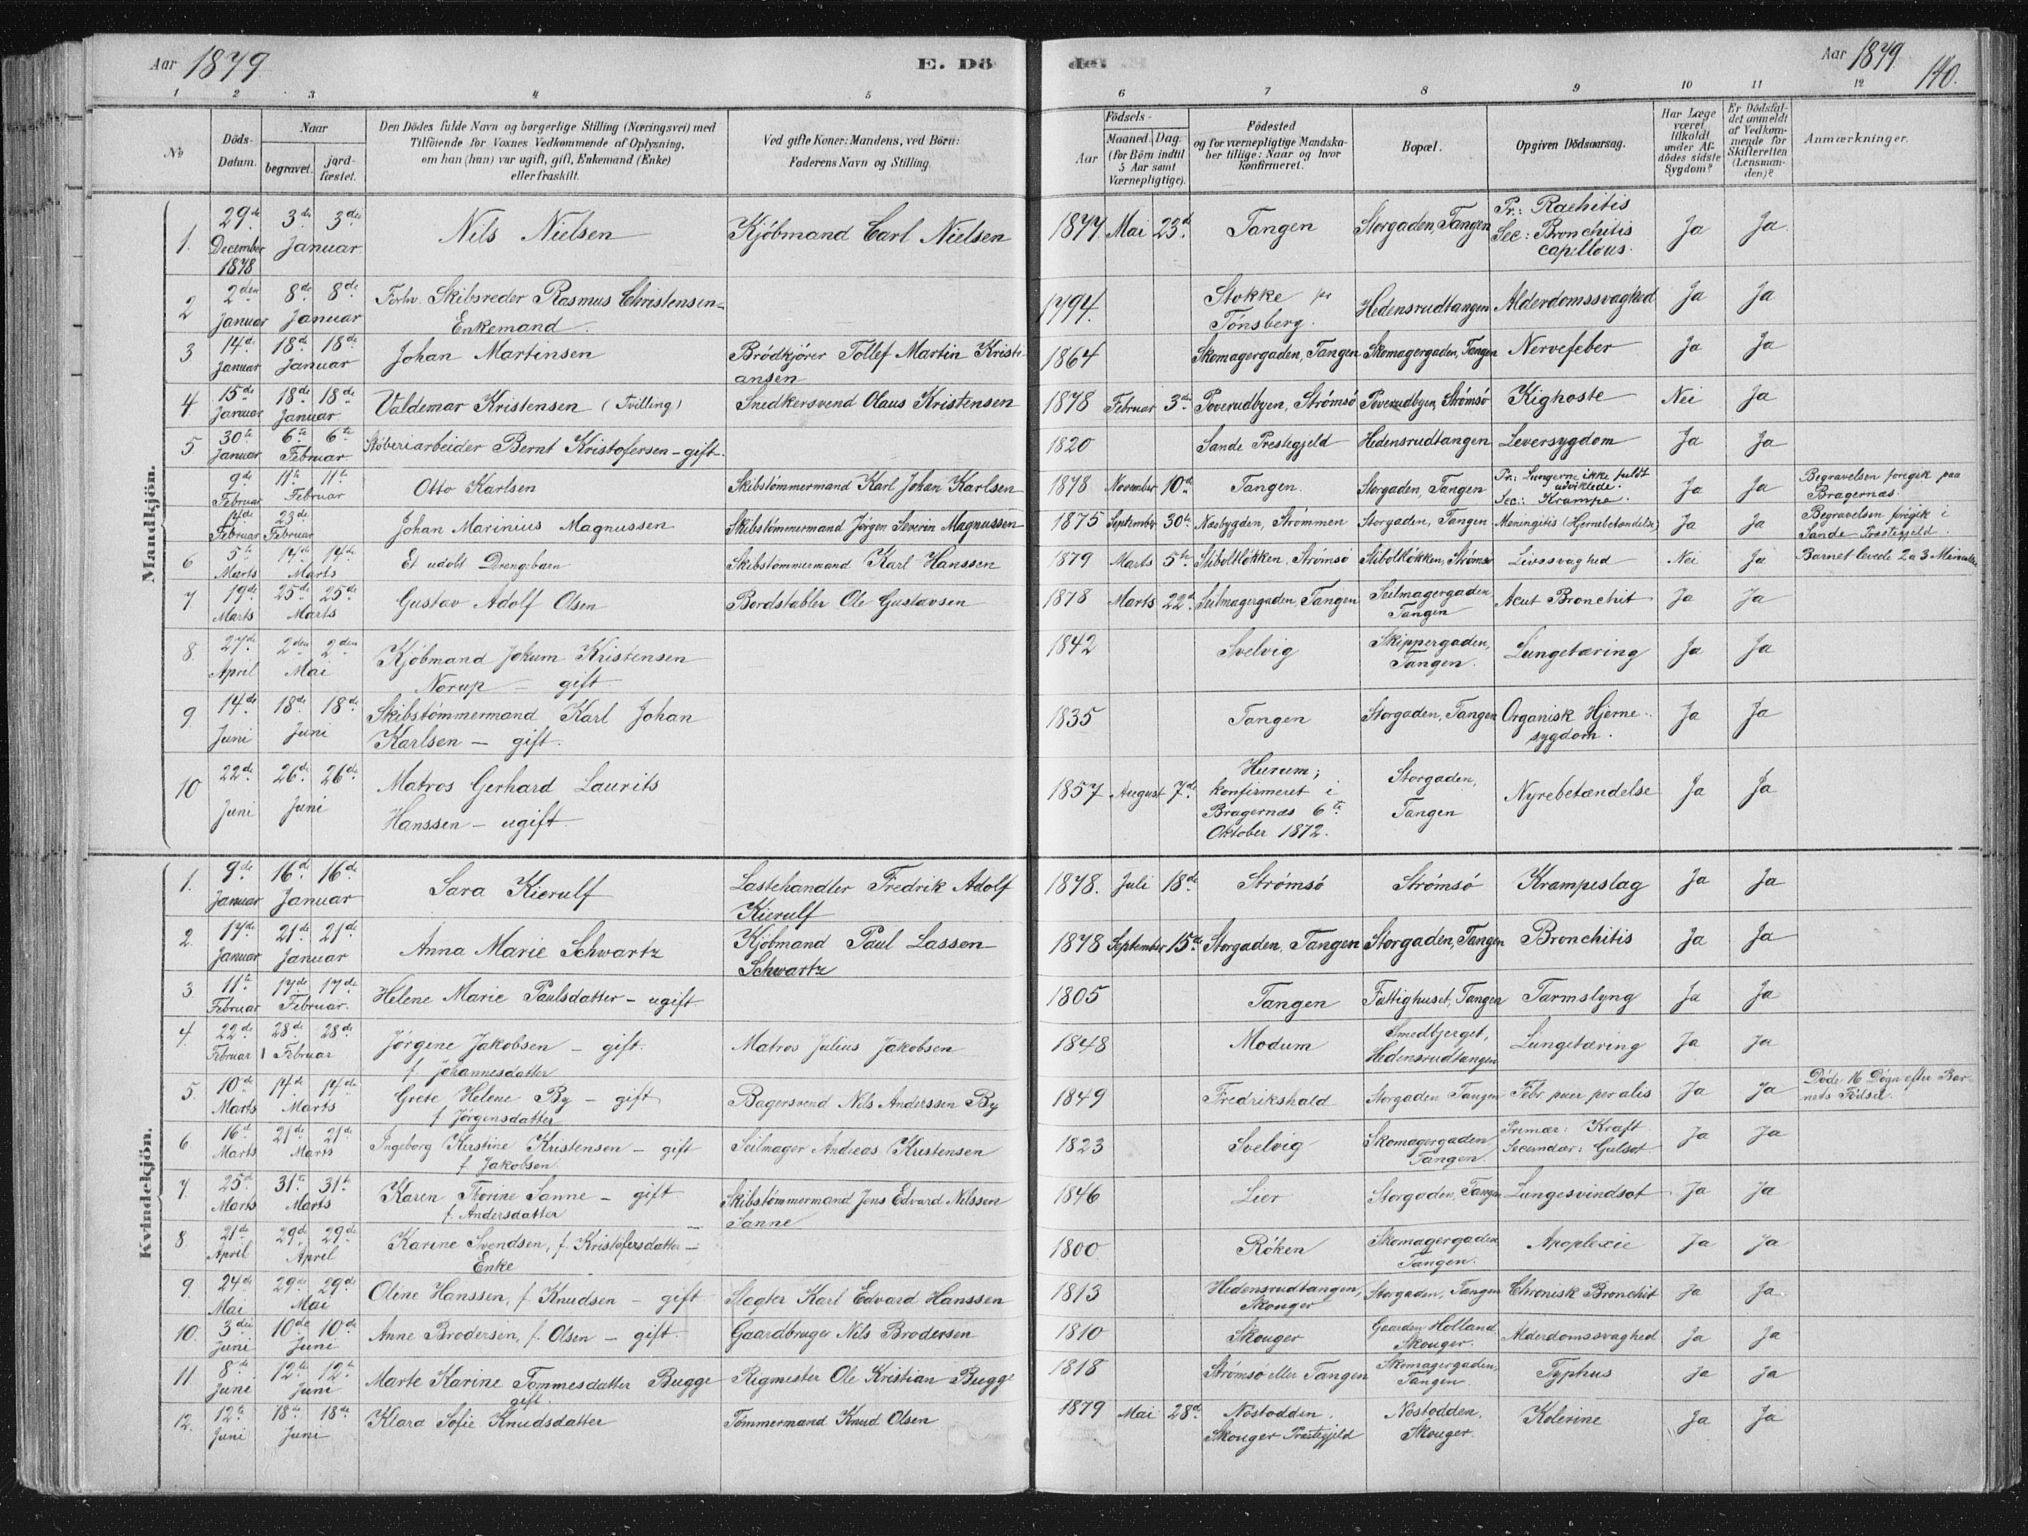 Aar 1879
E. Dö
de.
Aar 1879.
140.
1 2 3 4 5 6 7 8 9 10 11 12
No
Döds-Datum.
Naar
begravet.
jord-fæstet.
Den Dödes fulde Navn og borgerlige Stilling (Næringsvei) med
Tilföiende for Voxnes Vedkommende af Oplysning,
om han (hun) var ugift, gift, Enkemand (Enke)
eller fraskilt.
Ved gifte Koner: Mandens, ved Börn:
Faderens Navn og Stilling.
Födsels-
Aar
Maaned. Dag.
(for Börn indtil
5 Aar samt
Værnepligtige).
Födested
og for værnepligtige Mandska-
ber tillige: Naar og hvor
konfirmeret.
Bopæl.
Opgiven Dödsaarsag.
Har Læge
været
tilkaldt
under Af-
dödes sidste
Sygdom?
Er Dödsfal-
det anmeldt
af Vedkom-
mende for
Skifteretten
(Lensman-
den)?
Anmærkninger.
Mandkjön.
1. 29de December 1878 3die Januar 3die Nils Nielsen Kjöbmand Carl Nielsen 1877 Mai 23d Tangen Storgaden, Tangen Pr: Rachitis Sec: Bronchitis capillous. Ja Ja
2 2den Januar 8de Januar 8de Forhv. Skibsreder Rasmus Christensen – Enkemand. 1794. Stokke pr Tönsberg. Hedensrudtangen Alderdomssvaghed Ja Ja
3 14de Januar 18de Januar 18de Johan Martinsen Brödkjörer Tollef Martin Kristiansen 1864 Skomagergaden, Tangen Skomagergaden, Tangen Nervefeber Ja Ja
4 15de Januar 18de Januar 18de Valdemar Kristensen (Tvilling) Snedkersvend Olaus Kristensen 1878 Februar 3die Poverudbyen, Strömsö Poverudbyen, Strömsö Kighoste Nei Ja
5 30te Januar 6te Februar 6te Stöberiarbeider Bernt Kristofersen – gift. 1820 Sande Prestegjeld Hedensrudtangen Leversygdom Ja Ja
9de Februar 11te Februar 11te Otto Karlsen Skibstömmermand Karl Johan Karlsen 1878 November 10de Tangen. Storgaden, Tangen Pr: Lungerne ikke fuldt udviklede. Sec: Krampe. Ja Ja Begravelsen foregik paa Bragernæs.
17de Februar 23de Februar Johan Marinius Magnussen Skibstömmermand Jörgen Severin Magnussen 1875 September 30te Næsbygden, Strömmen Storgaden, Tangen Meningitis (Hjernebetændelse) Ja Ja Begravelsen foregik i Sande Præstegjeld.
6 5te Marts 14de Marts 14de Et udöbt Drengebarn Skibstömmermand Karl Hanssen 1879 Marts 5te Stiboltlökken, Strömsö Stiboltlökken, Strömsö Livssvaghed Nei Ja Barnet levede 2 a 3 Minutter
7 19de Marts 25de Marts 25de Gustav Adolf Olsen Bordstabler Ole Gustavsen 1878 Marts 22d Seilmagergaden, Tangen Seilmagergaden Tangen Acut Bronchit Ja Ja
8. 27de April 2den Mai 2den Kjöbmand Jokum Kristensen Norup – gift. 1842 Svelvig Skippergaden, Tangen. Lungetæring Ja Ja
9 14de Juni 18de Juni 18de Skibstömmermand Karl Johan Karlsen – gift. 1835 Tangen Storgaden, Tangen Organisk Hjernesygdom. Ja Ja
10 22de Juni 26de Juni 26de Matros Gerhard Laurits Hanssen – ugift. 1857 August 7de Hurum; konfirmeret i Bragernæs 6te Oktober 1872. Storgaden, Tangen Nyrebetændelse Ja Ja
Kvindekjön.
1. 9de Januar 16de Januar 16de Sara Kierulf Lastehandler Fredrik Adolf Kierulf 1878. Juli 18de Strömsö Strömsö Krampeslag Ja Ja
2. 17de Januar 21de Januar 21de Anna Marie Schwartz Kjöbmand Paul Lassen Schwartz 1878 September 15de Storgaden, Tangen Storgaden, Tangen Bronchitis Ja Ja
3. 11te Februar 17de Februar. 17de Helene Marie Paulsdatter – ugift 1805 Tangen Fattighuset, Tangen Tarmslyng Ja Ja
4. 22de Februar 28de Februar 28de Jörgine Jakobsen – gift. f. Johannesdatter Matros Julius Jakobsen 1848 Modum Smedbjerget, Hedensrudtangen Lungetæring Ja Ja
5. 10de Marts 14de Marts 14de Grete Helene By – gift f. Jörgensdatter Bagersvend Nils Anderssen By 1849 Fredrikshald Storgaden Tangen Febr. puer peralis Ja Ja Döde 16 Dögn efter Barnets Födsel.
6. 16de Marts 21de Marts 21de Ingeborg Kirstine Kristensen – gift f. Jakobsen Seilmager Andreas Kristensen 1823 Svelvig Skomagergaden Tangen. Primær: Kræft. Secundær: Gulsot Ja Ja
7. 25de Marts 31te Marts 31te Karen Thorine Sanne – gift f. Andersdatter Skibstömmermand Jens Edvard Nilssen Sanne 1846 Lier Storgaden, Tangen Lungesvindsot Ja Ja
8. 21de April 29de April 29de Karine Svendsen, f. Kristofersdatter – Enke 1800 Röken Skomagergaden Tangen. Apoplexie Ja Ja
9. 24de Mai 29de Mai 29de Oline Hanssen, f. Knudsen – gift Slagter Karl Edvard Hanssen 1813 Hedensrudtangen, Skouger Storgaden, Tangen Chronisk Bronchit Ja Ja.
10. 3die Juni 10de Juni 10de Anne Brodersen, f. Olsen – gift. Gaardbruger Nils Brodersen 1810 Skouger Gaarden Holland Skouger. Alderdomssvaghed Ja Ja
11. 8de Juni 12te Juni 12te Marte Karine Tommesdatter Bugge gift. Rigmester Ole Kristian Bugge 1818 Strömsö eller Tangen Skomagergaden, Tangen. Typhus Ja Ja
12. 12te Juni 18de Juni 18de Klara Sofie Knudsdatter Tömmermand Knud Olsen 1879 Mai 28de Nöstodden, Skouger Præstegjeld Nöstodden, Skouger. Kolerine Ja Ja